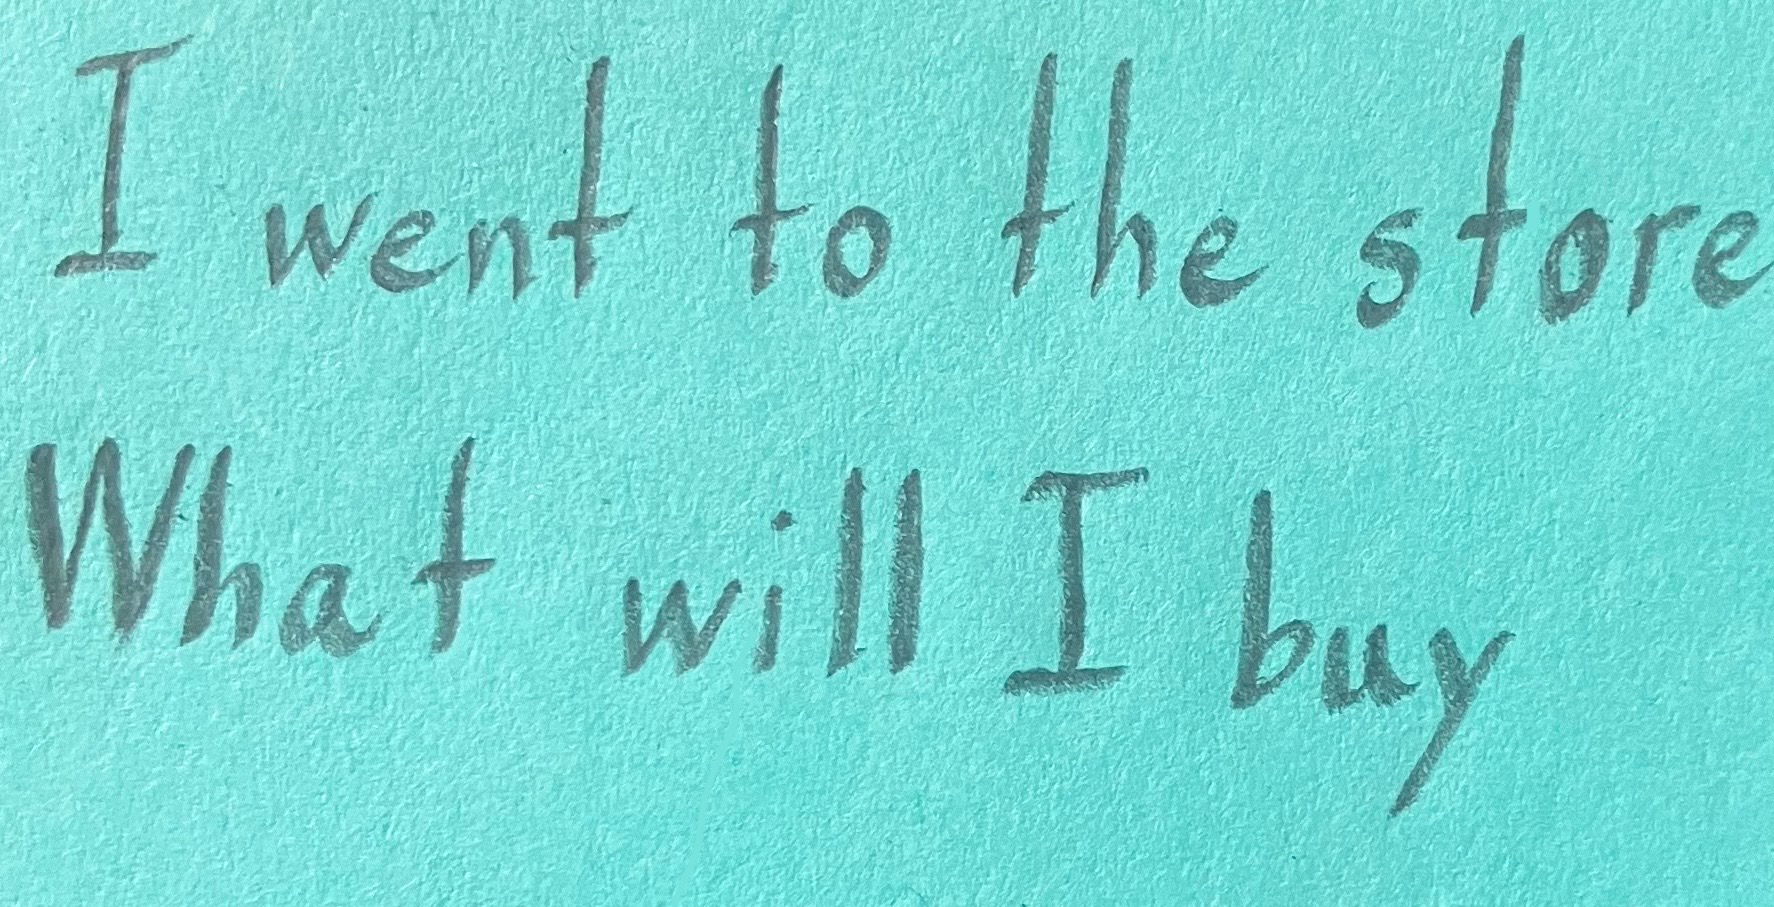 I went to the store
What will I buy